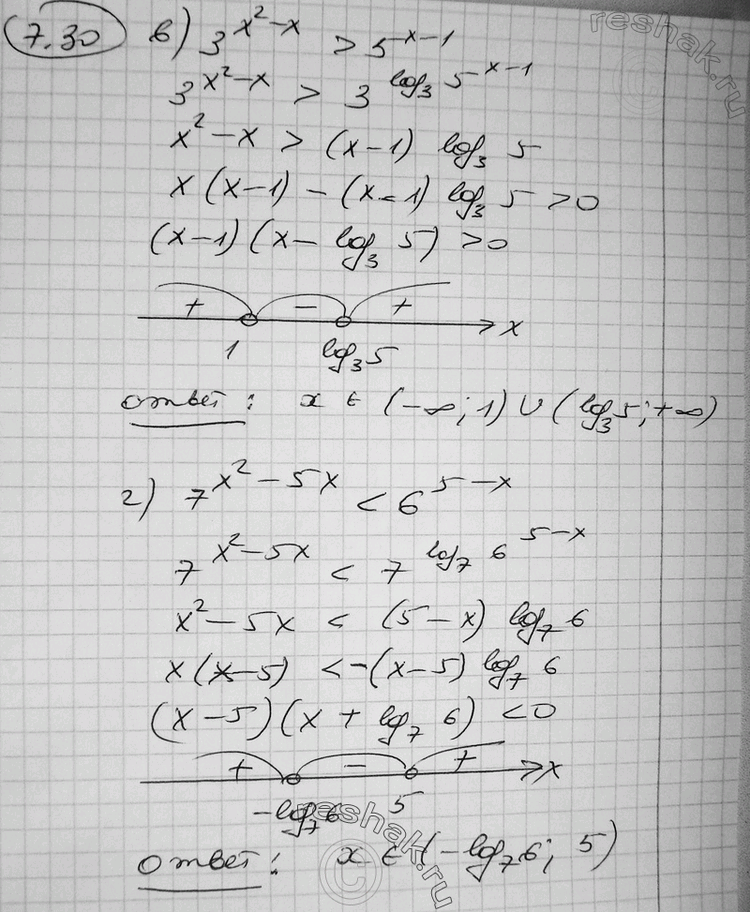 7.30 в) 3^{x²-x} > 5^{x-1}
3^{x²-x} > 3^{log₃ 5^{x-1}}
x² - x > (x-1) log₃ 5
x(x-1) - (x-1) log₃ 5 > 0
(x-1)(x - log₃ 5) > 0
+ - + x
1 log₃5
ответ: x ∈ (-∞; 1) ∪ (log₃5; +∞)
г) 7^{x²-5x} < 6^{5-x}
7^{x²-5x} < 7^{log₇ 6^{5-x}}
x² - 5x < (5-x) log₇ 6
x(x-5) < -(x-5) log₇ 6
(x-5)(x + log₇ 6) < 0
+ - + x
-log₇6 5
ответ: x ∈ (-log₇6; 5)
reshak.ru
reshak.ru